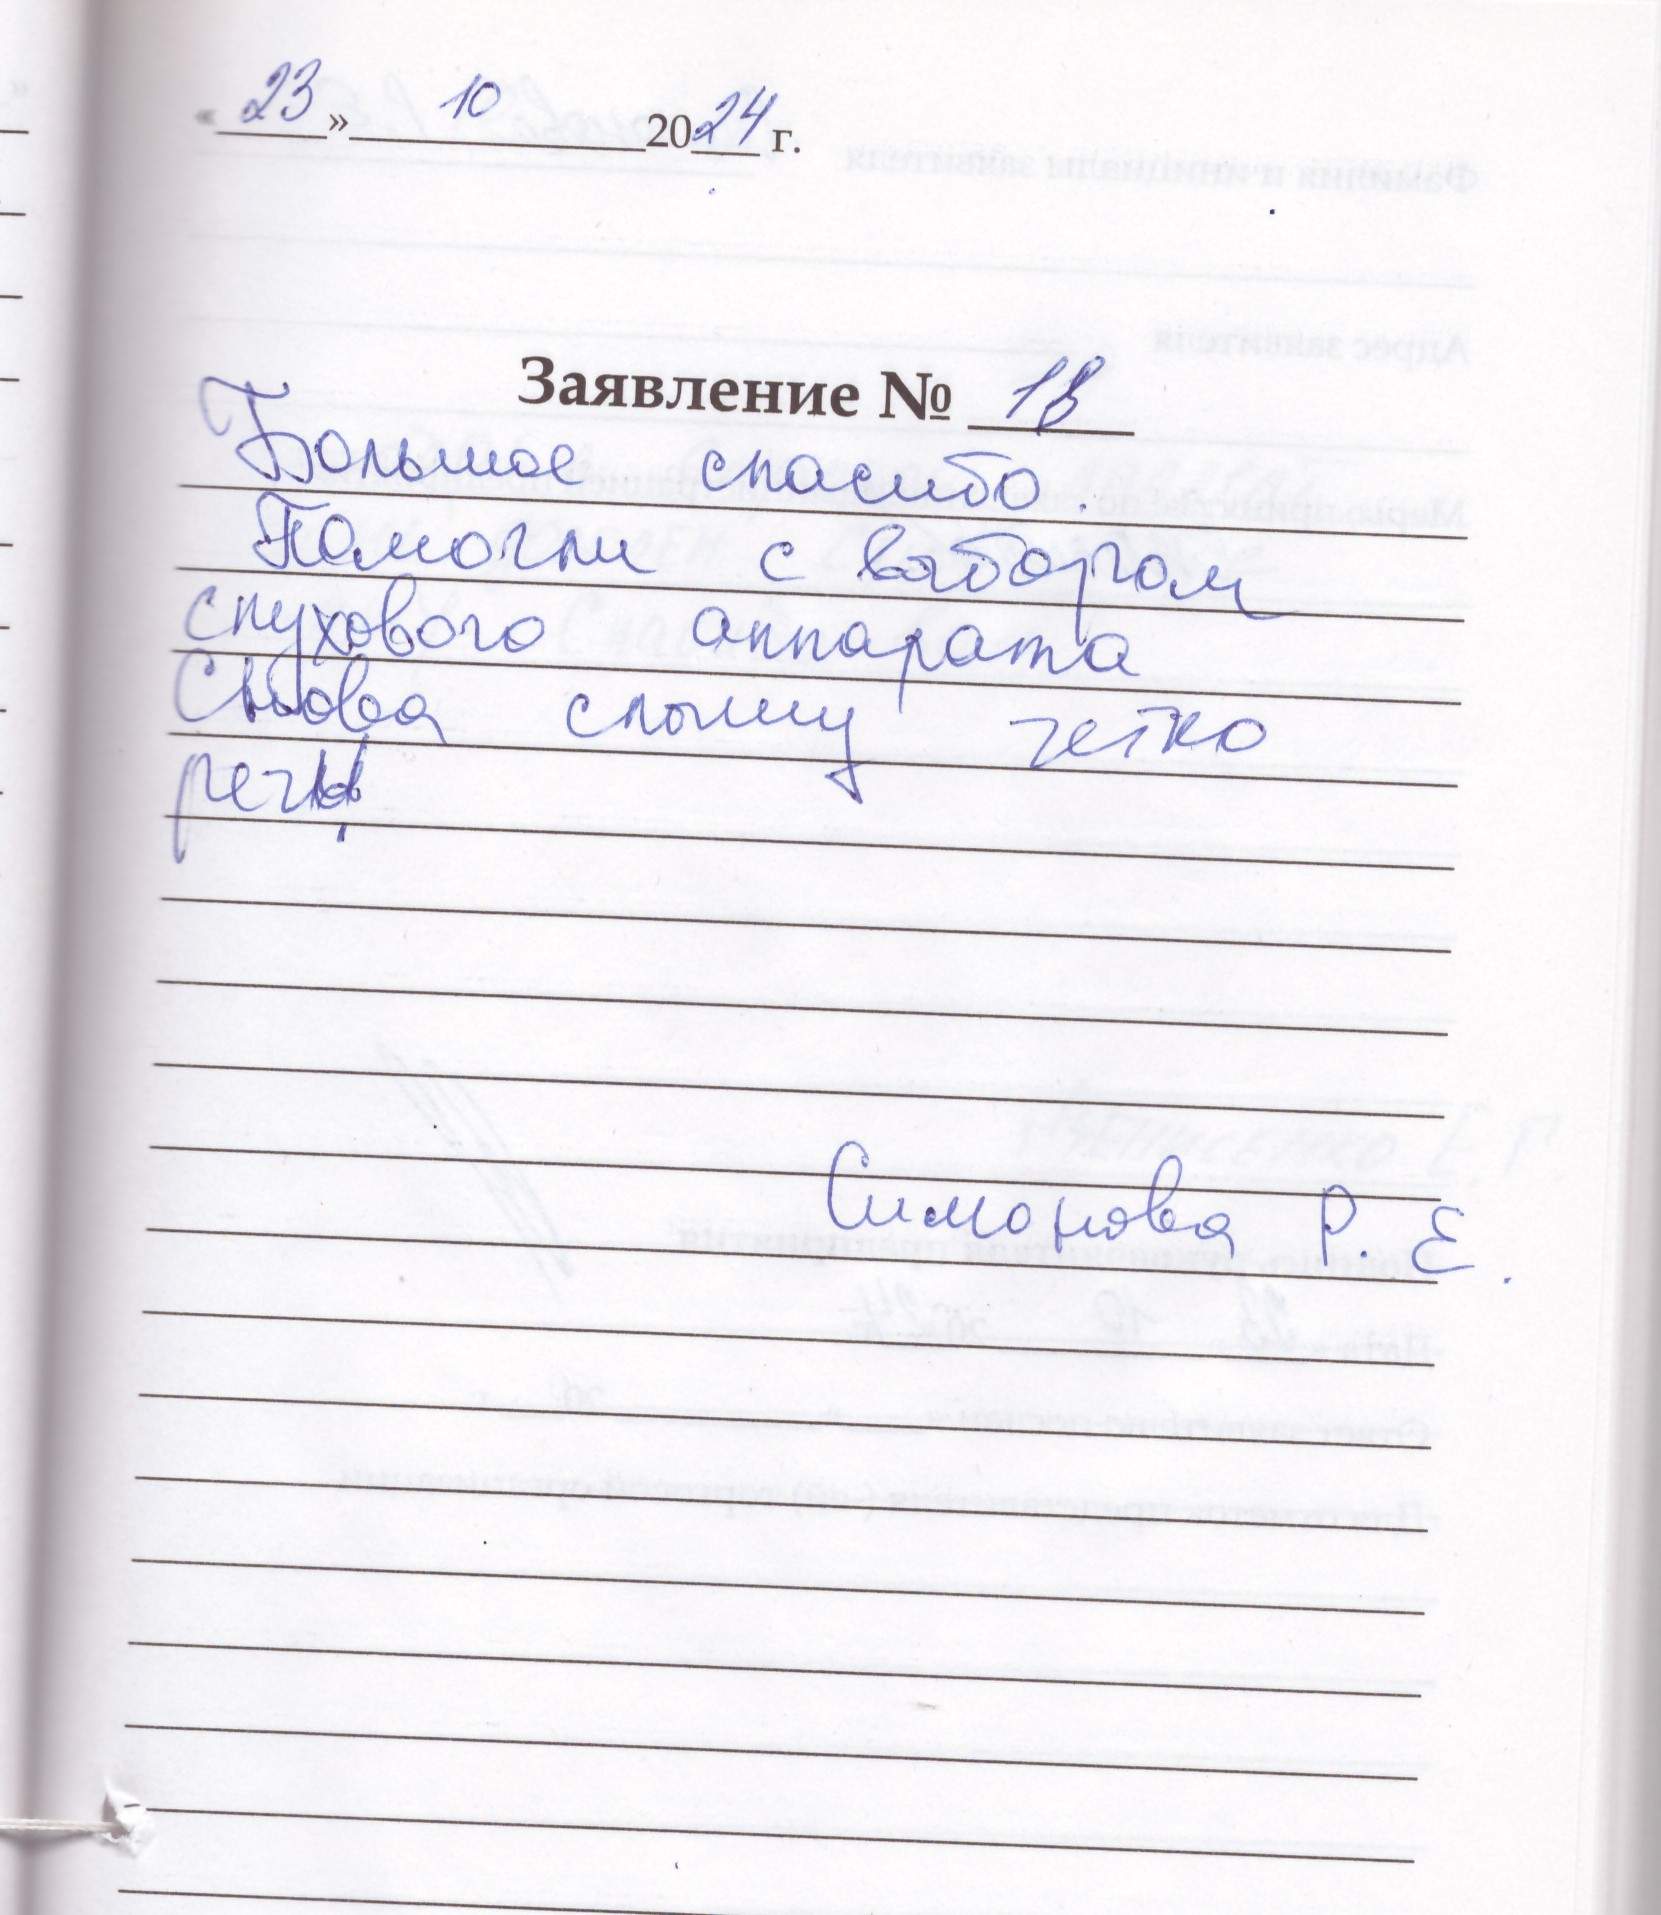 « 23 » 10 2024 г.
Заявление № 18
Большое спасибо.
Помогли с выбором
слухового аппарата
Снова слышу четко
речь
Симонова Р. Е.